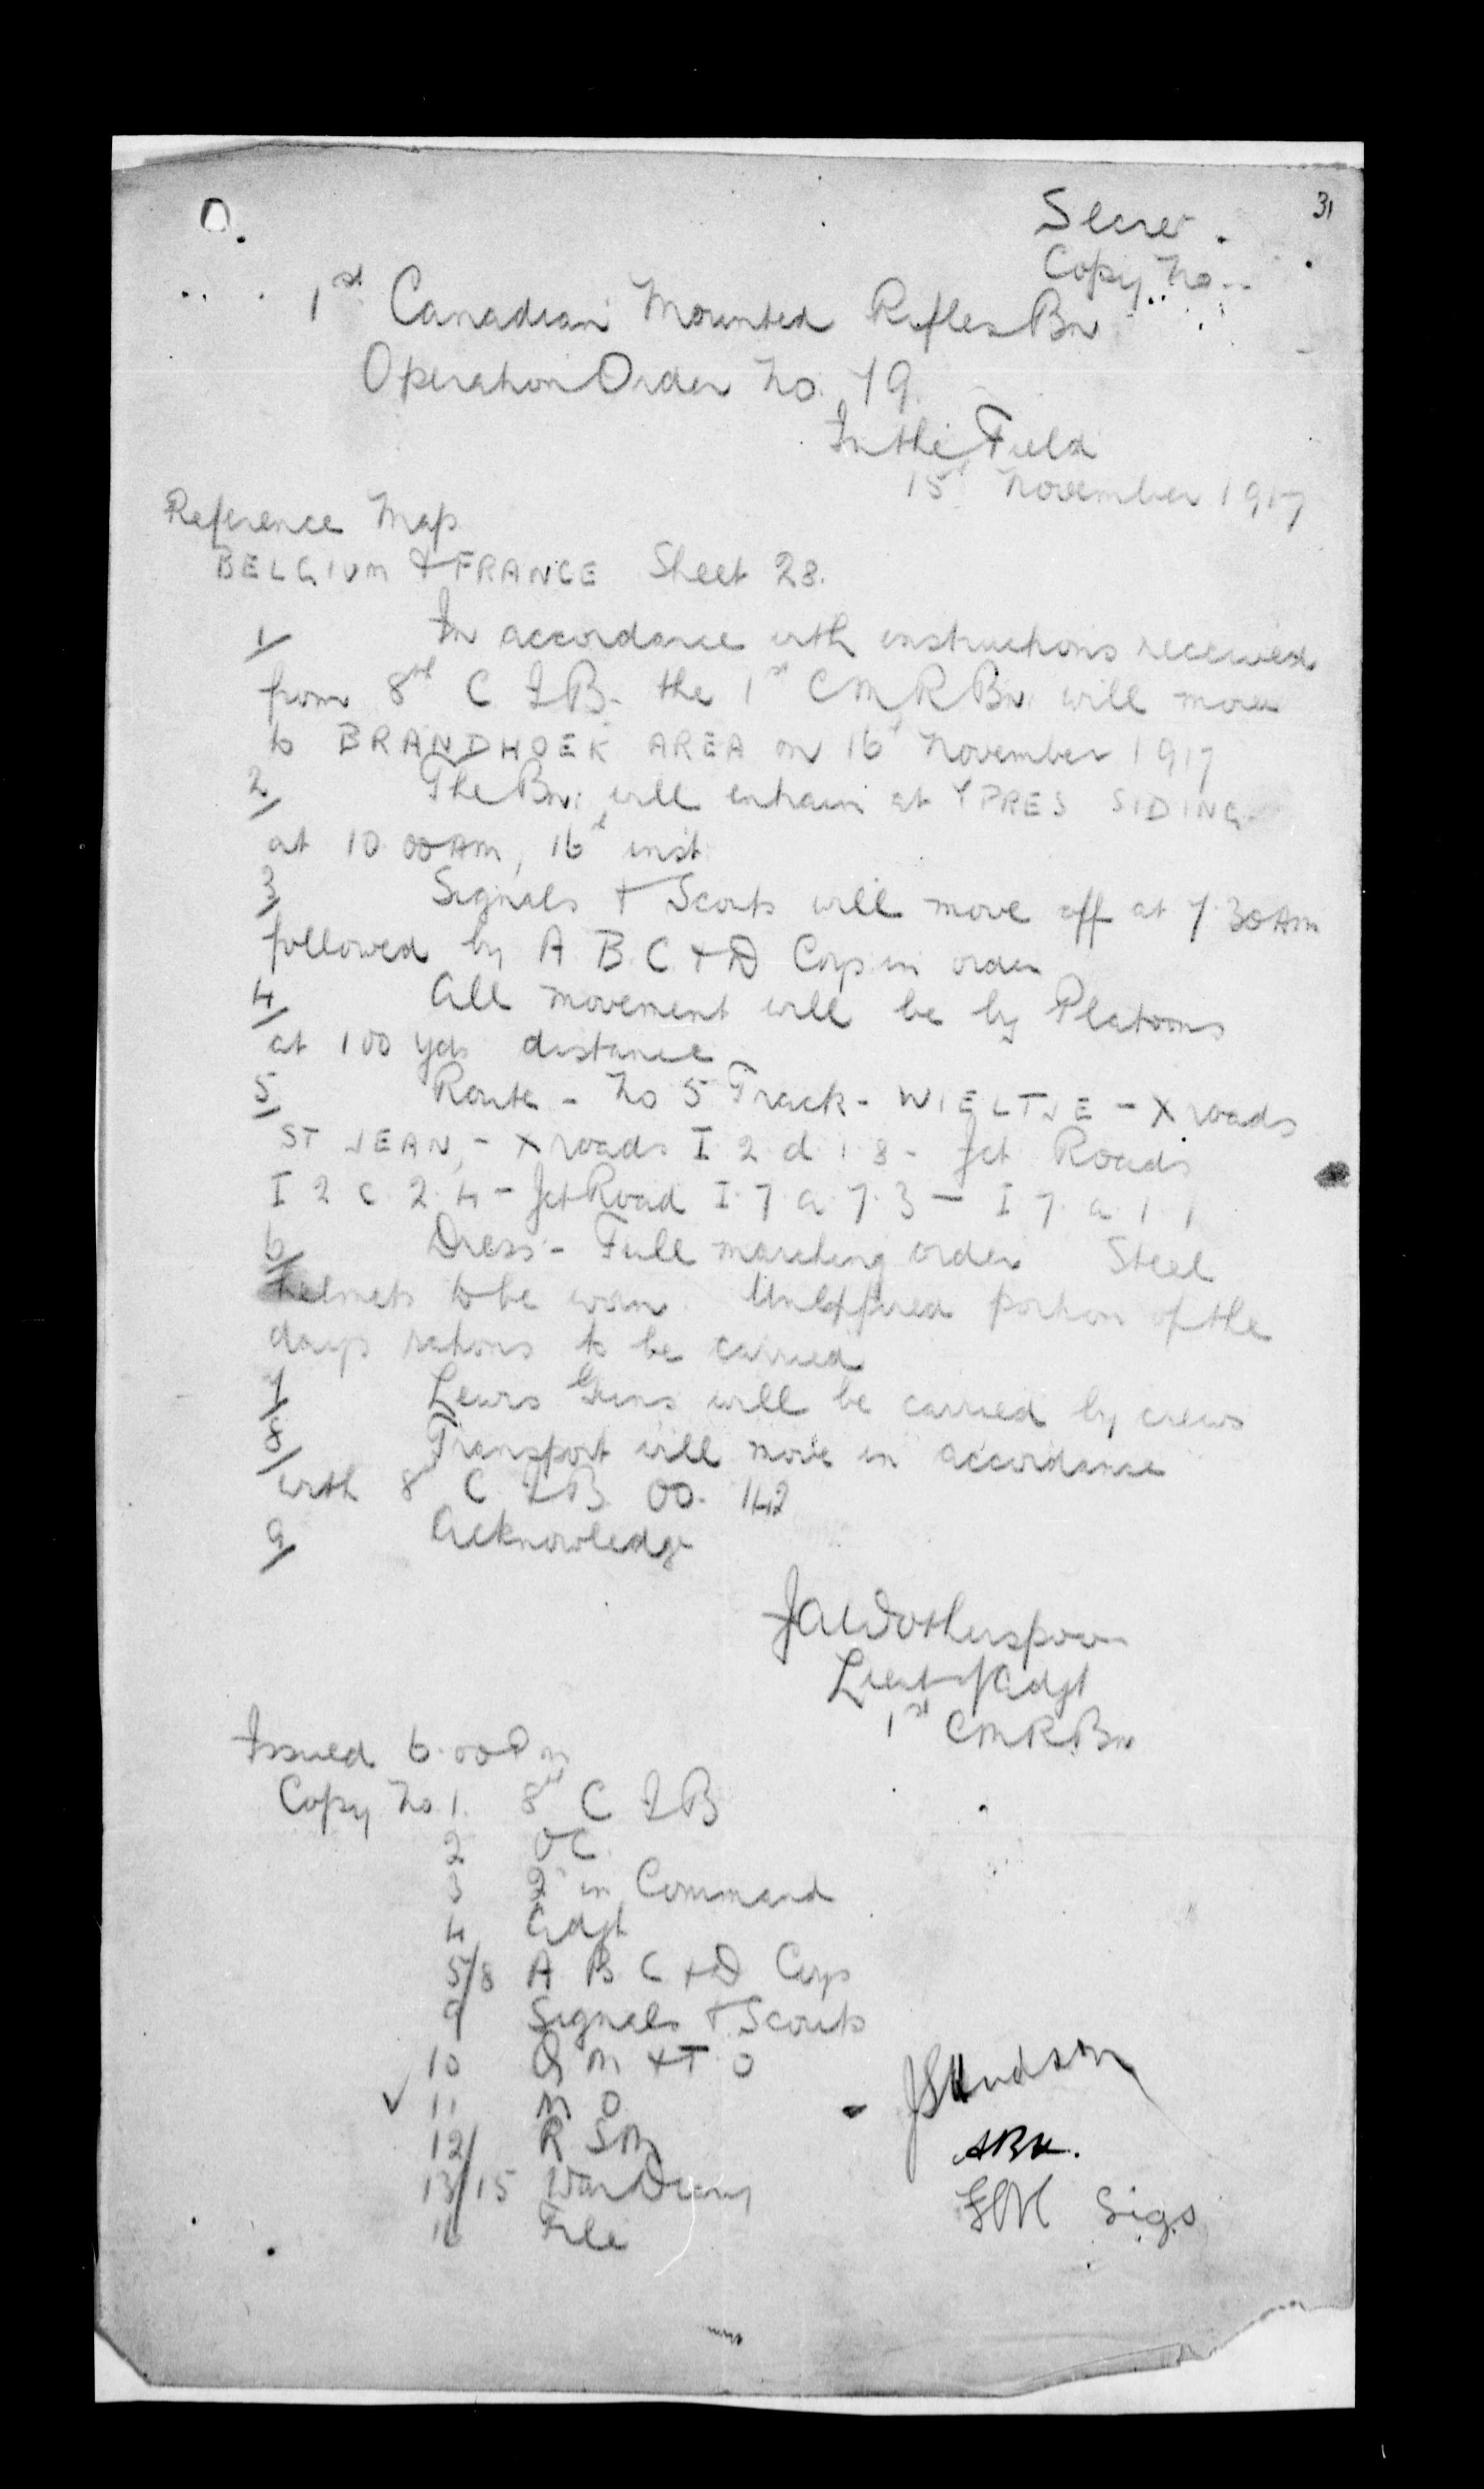 31
Secret.
Copy No..
1st Canadian Mounted Rifles Bn
Operation Order No. 79.
In the Field
15th November 1917
Reference Map
BELGIUM & FRANCE Sheet 28.
1/ In accordance with instructions received
from 8th C I B. the 1st C M R Bn. will move
to BRANDHOEK AREA on 16th November 1917
2/ The Bn. will entrain at YPRES SIDING
at 10.00 AM, 16th inst.
3/ Signals & Scouts will move off at 7.30 AM
followed by A. B. C. & D Coys in order
4/ All movement will be by Platoons
at 100 yds distance
5/ Route - No 5 Track - WIELTJE - X roads
ST JEAN, - X roads I 2. d. 1. 8 - Jct Roads
I 2 C 2. 4 - Jct Road I. 7. a 7. 3 - I 7. a. 1. 1
6/ Dress - Full marching order Steel
helmets to be worn. Unexpired portion of the
days rations to be carried
7/ Lewis Guns will be carried by crews
8/ Transport will move in accordance
with 8th C. I. B. OO. 142
9/ Acknowledge
JA Wotherspoon
Lieut & Adgt
1st CMR Bn
Issued 6.00 Pm
Copy No 1. 8th C I B
2 OC.
3 2nd in Command
4 Adgt
5/8 A B C & D Coys
9 Signals & Scouts
10 Q M & T. O
11 M O.
12/ R S M
13/15 War Diary
16 File
JS Hudson
Sigs